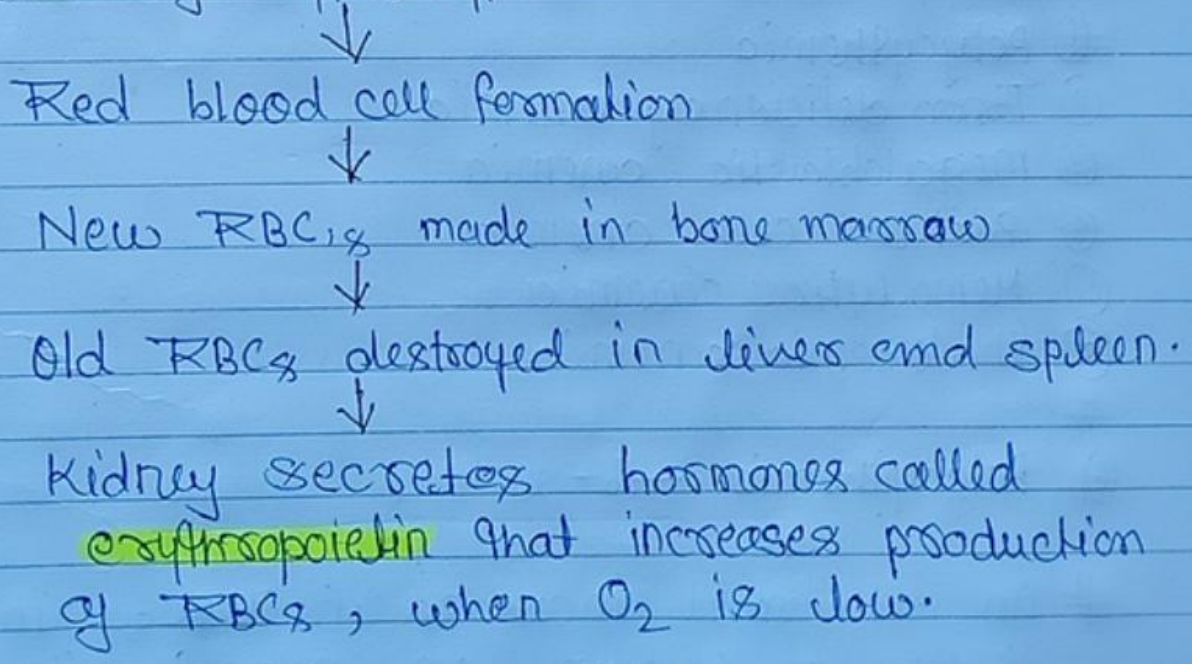 ↓
Red blood cell formation
↓
New RBC,s made in bone marrow
↓
Old RBCs destroyed in liver and spleen.
↓
Kidney secretes hormones called
erythropoietin that increases production
of RBCs, when O₂ is low.